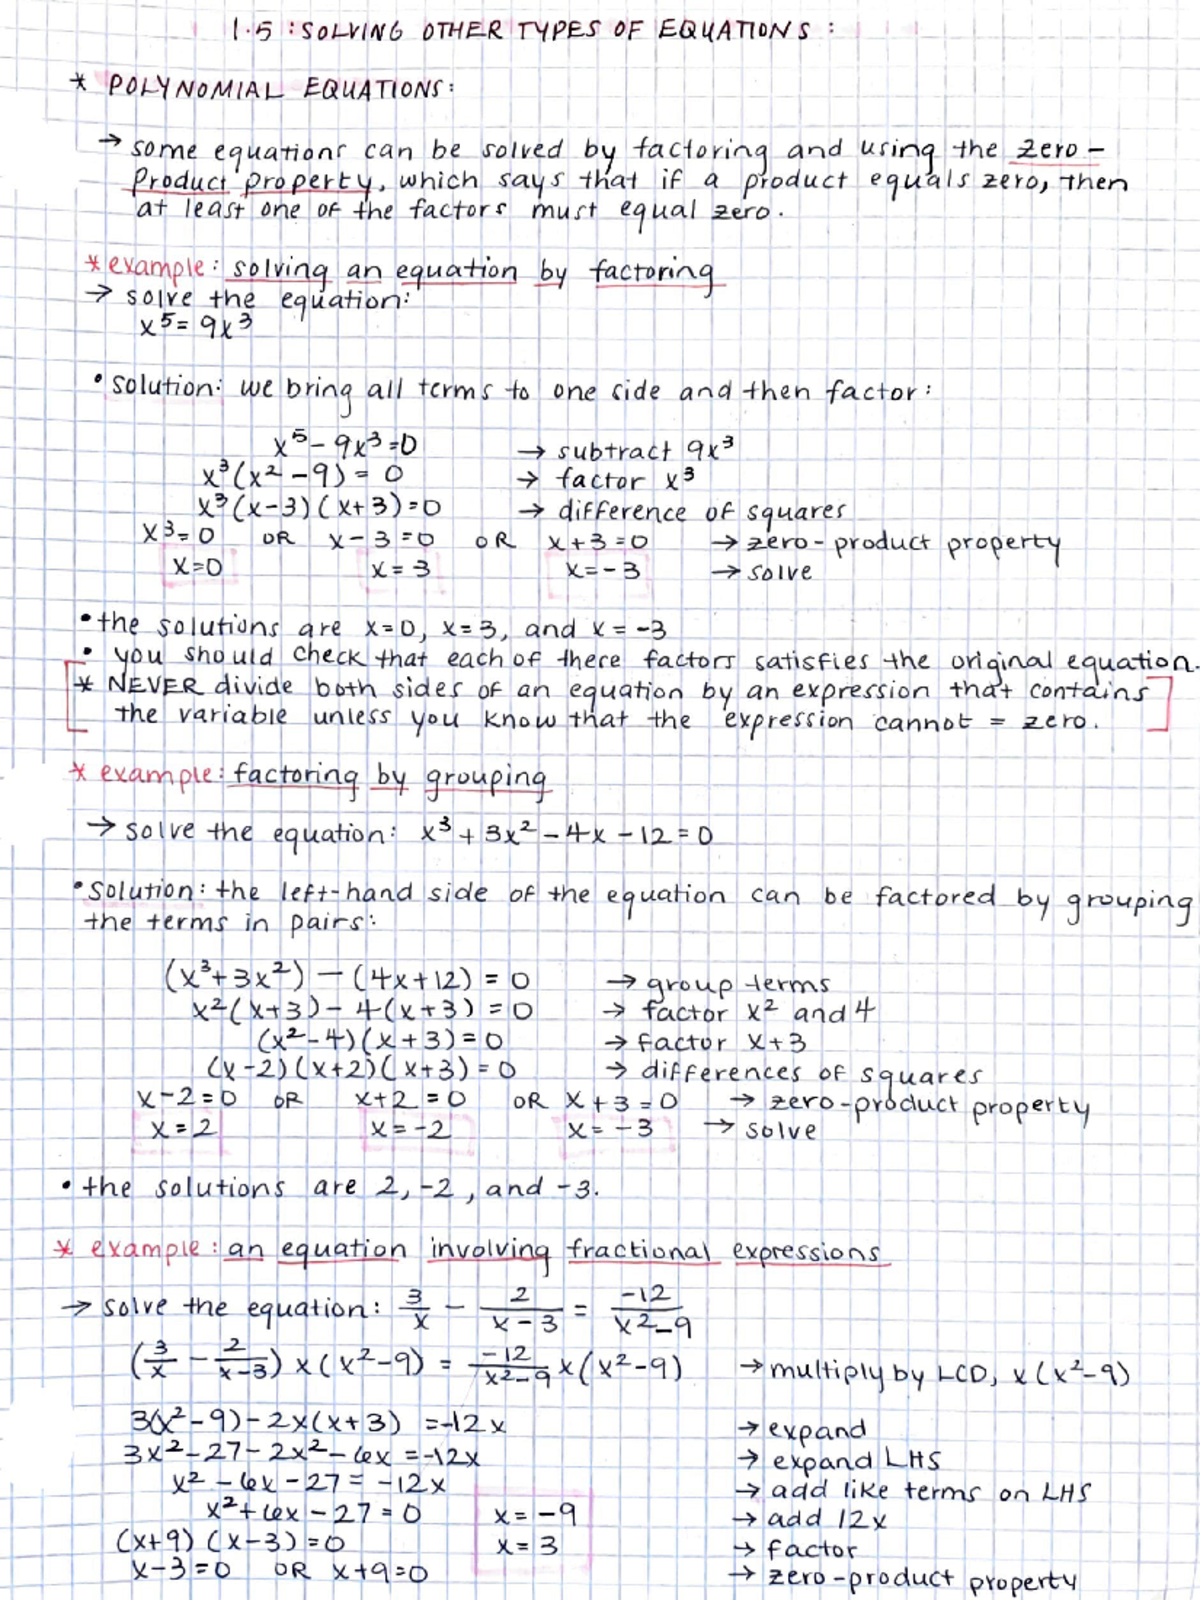 1.5 : SOLVING OTHER TYPES OF EQUATIONS :
* POLYNOMIAL EQUATIONS:
→ some equations can be solved by factoring and using the zero-
Product property, which says that if a product equals zero, then
at least one of the factors must equal zero.
* example: solving an equation by factoring
→ solve the equation:
x⁵ = 9x³
• solution: we bring all terms to one side and then factor:
x⁵ - 9x³ = 0 → subtract 9x³
x³(x² - 9) = 0 → factor x³
x³(x-3)(x+3) = 0 → difference of squares
x³ = 0 OR x - 3 = 0 OR x + 3 = 0 → zero-product property
x = 0 x = 3 x = -3 → solve
• the solutions are x = 0, x = 3, and x = -3
• you should check that each of these factors satisfies the original equation.
* NEVER divide both sides of an equation by an expression that contains
the variable unless you know that the expression cannot = zero.
* example: factoring by grouping
→ solve the equation: x³ + 3x² - 4x - 12 = 0
• solution: the left-hand side of the equation can be factored by grouping
the terms in pairs:
(x³ + 3x²) - (4x + 12) = 0 → group terms
x²(x+3) - 4(x+3) = 0 → factor x² and 4
(x² - 4)(x+3) = 0 → factor x+3
(x-2)(x+2)(x+3) = 0 → differences of squares
x - 2 = 0 OR x + 2 = 0 OR x + 3 = 0 → zero-product property
x = 2 x = -2 x = -3 → solve
• the solutions are 2, -2, and -3.
* example: an equation involving fractional expressions
→ solve the equation: 3/x - 2/(x-3) = -12/(x²-9)
(3/x - 2/(x-3)) x(x²-9) = -12/(x²-9) x(x²-9) → multiply by LCD, x(x²-9)
3(x²-9) - 2x(x+3) = -12x → expand
3x² - 27 - 2x² - 6x = -12x → expand LHS
x² - 6x - 27 = -12x → add like terms on LHS
x² + 6x - 27 = 0 x = -9 → add 12x
(x+9)(x-3) = 0 x = 3 → factor
x - 3 = 0 OR x + 9 = 0 → zero-product property